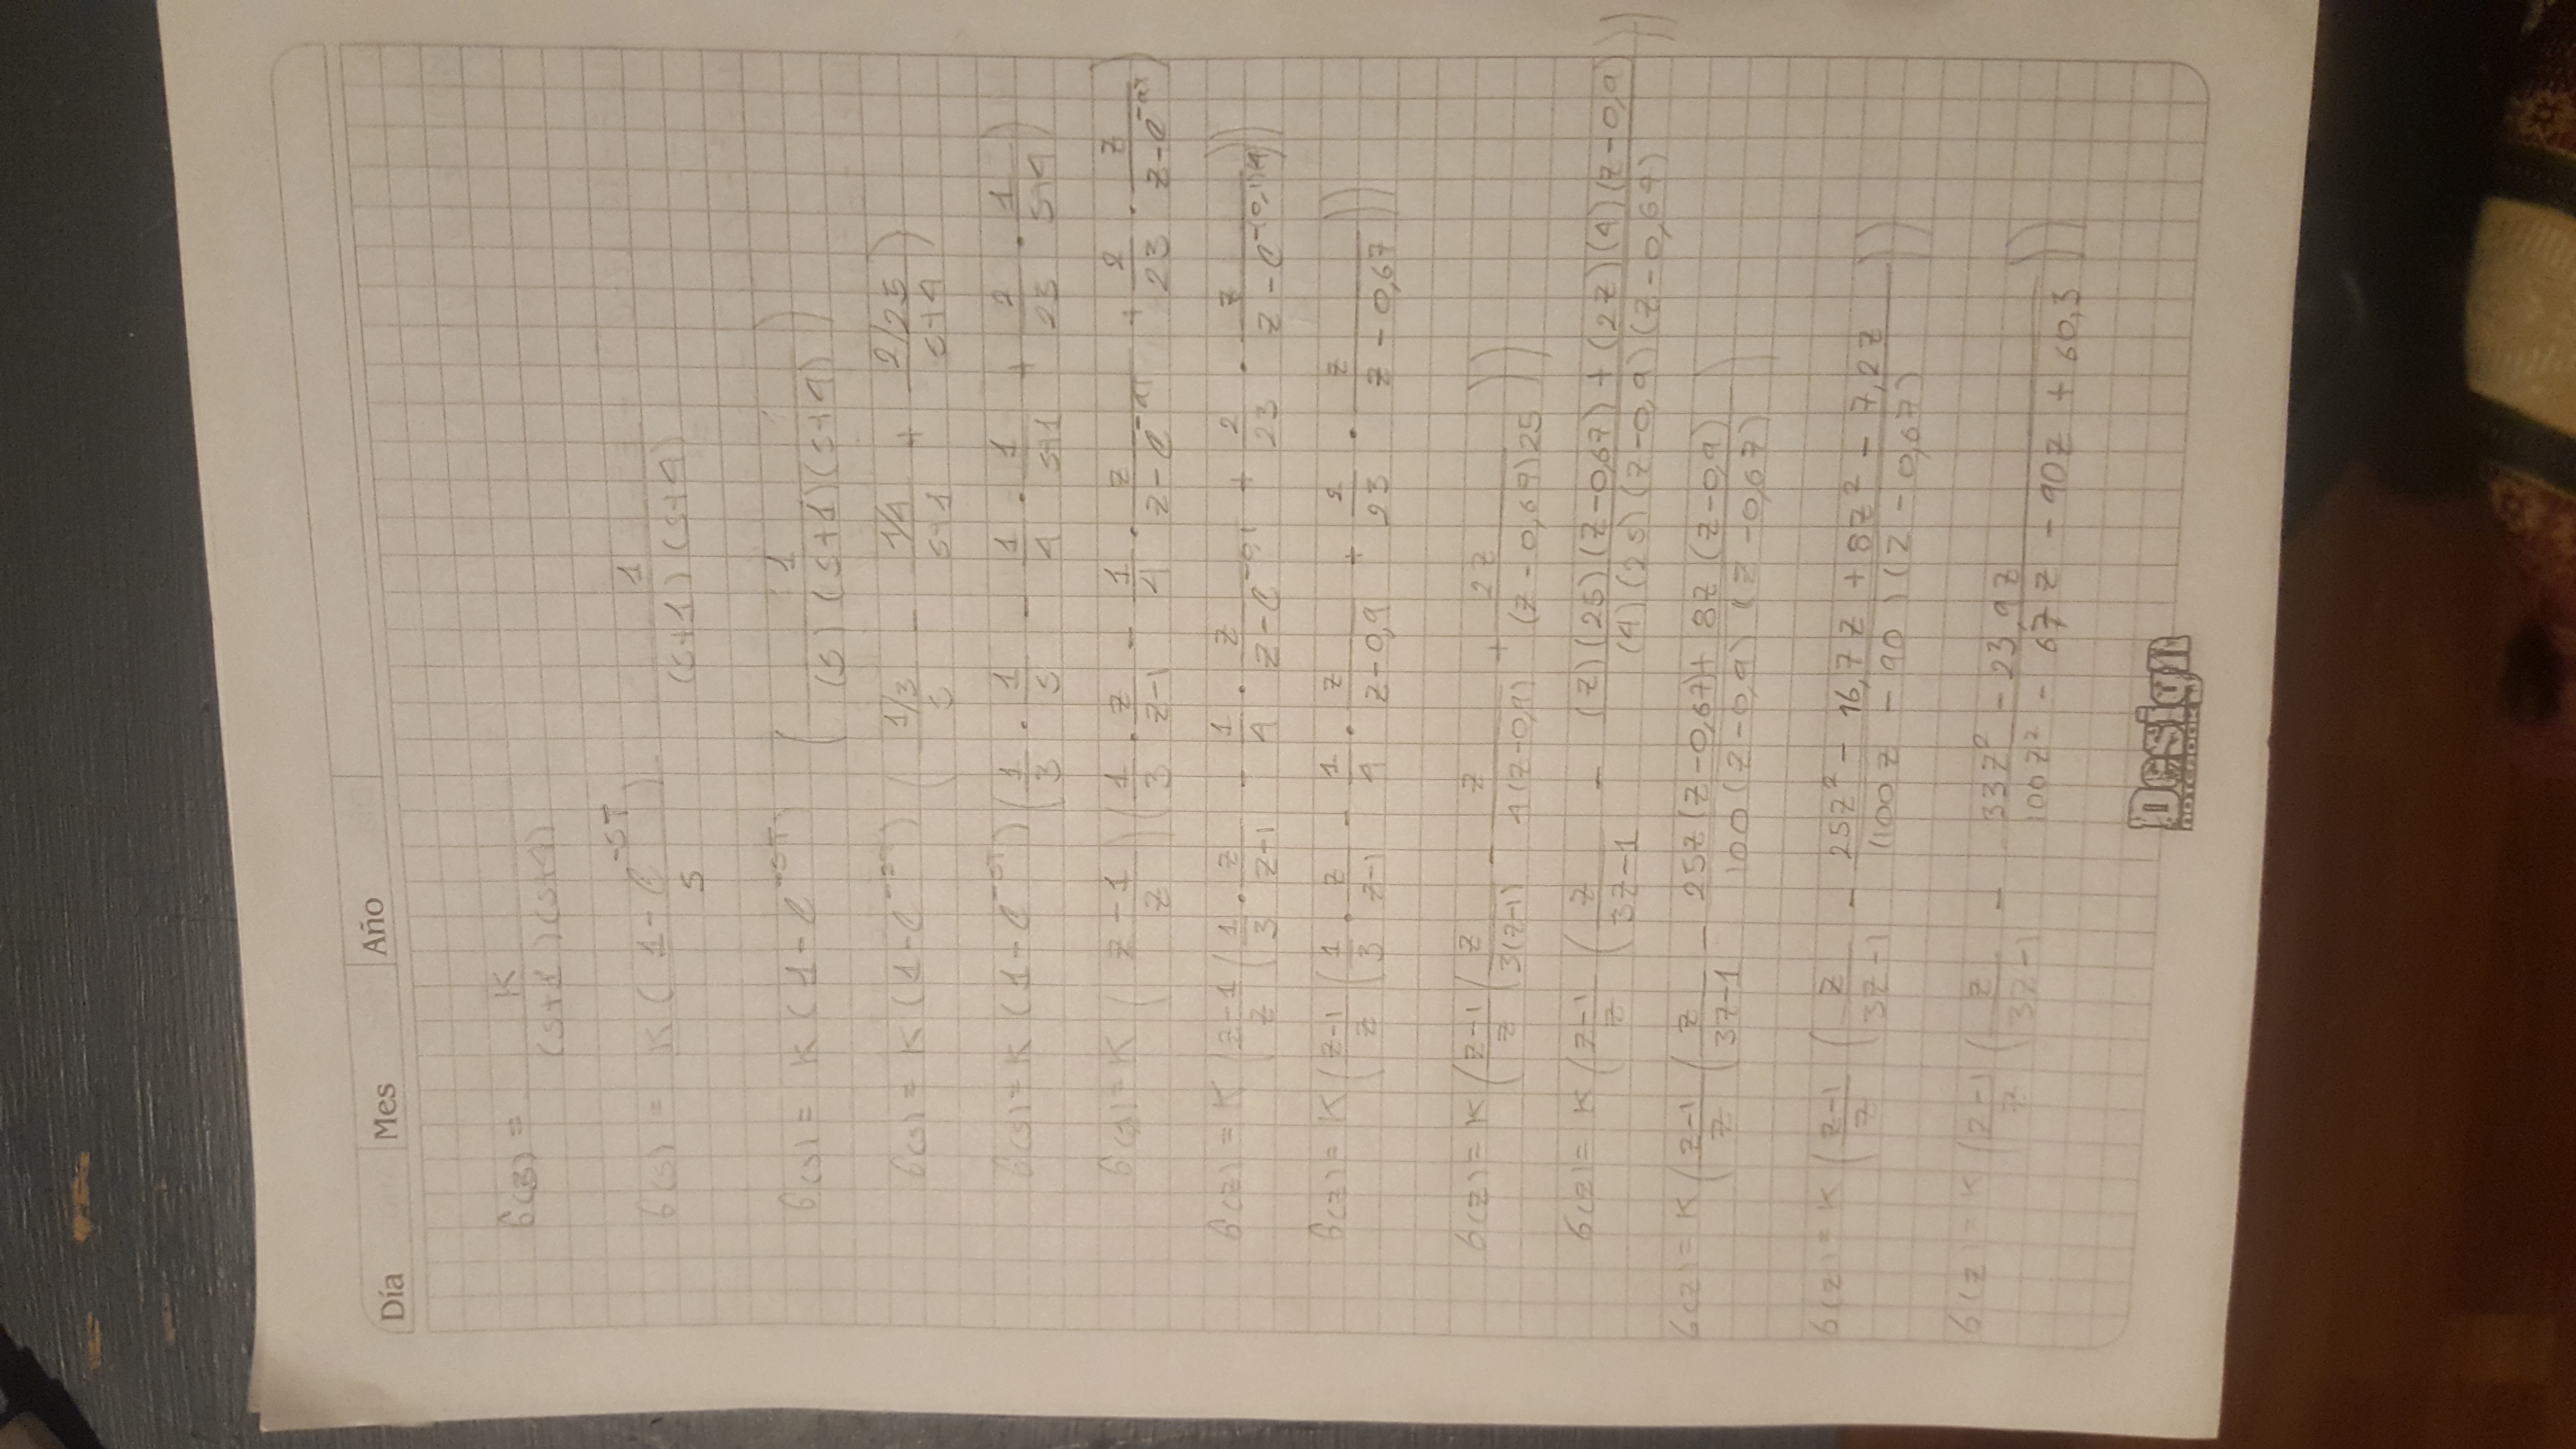 Día Mes Año
G(s) = K / (s+1)(s+4)
G(s) = K (1-e^-ST / s) 1 / (s+1)(s+4)
G(s) = K (1-e^-ST) (1 / (s)(s+1)(s+4))
G(s) = K (1-e^-ST) (1/3 / s - 1/4 / s+1 + 2/25 / s+4)
G(s) = K (1-e^-ST) (1/3 · 1/s - 1/4 · 1/s+1 + 2/23 · 1/s+4)
G(z) = K (z-1 / z) (1/3 · z/z-1 - 1/4 · z/z-e^-aT + 2/23 · z/z-e^-aT)
G(z) = K (z-1 / z (1/3 · z/z-1 - 1/4 · z/z-e^-0,1 + 2/23 · z/z-e^-(0,1)4))
G(z) = K (z-1 / z (1/3 · z/z-1 - 1/4 · z/z-0,9 + 2/23 · z/z-0,67))
G(z) = K (z-1 / z (z / 3(z-1) - z / 4(z-0,9) + 2z / (z-0,67)25))
G(z) = K (z-1 / z (z / 3z-1 - (z)(25)(z-0,67) + (2z)(4)(z-0,9) / (4)(25)(z-0,9)(z-0,67)))
G(z) = K (z-1 / z (z / 3z-1 - 25z(z-0,67) + 8z (z-0,9) / 100(z-0,9)(z-0,67))
G(z) = K (z-1 / z (z / 3z-1 - 25z² - 16,7z + 8z² - 7,2z / (100z - 90)(z-0,67)))
G(z) = K (z-1 / z (z / 3z-1 - 33z² - 23,9z / 100z² - 67z - 90z + 60,3))
Design
NOTEBOOK